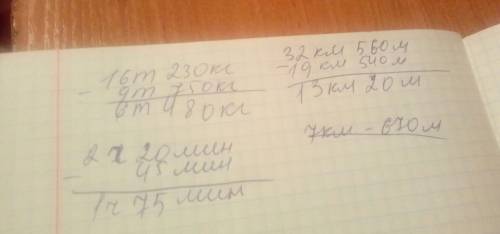 - 16т 230кг
9т 750кг
6т 480кг
- 2ч 20мин
45мин
1ч 75мин
- 32км 560м
19км 540м
13км 20м
7км - 670м